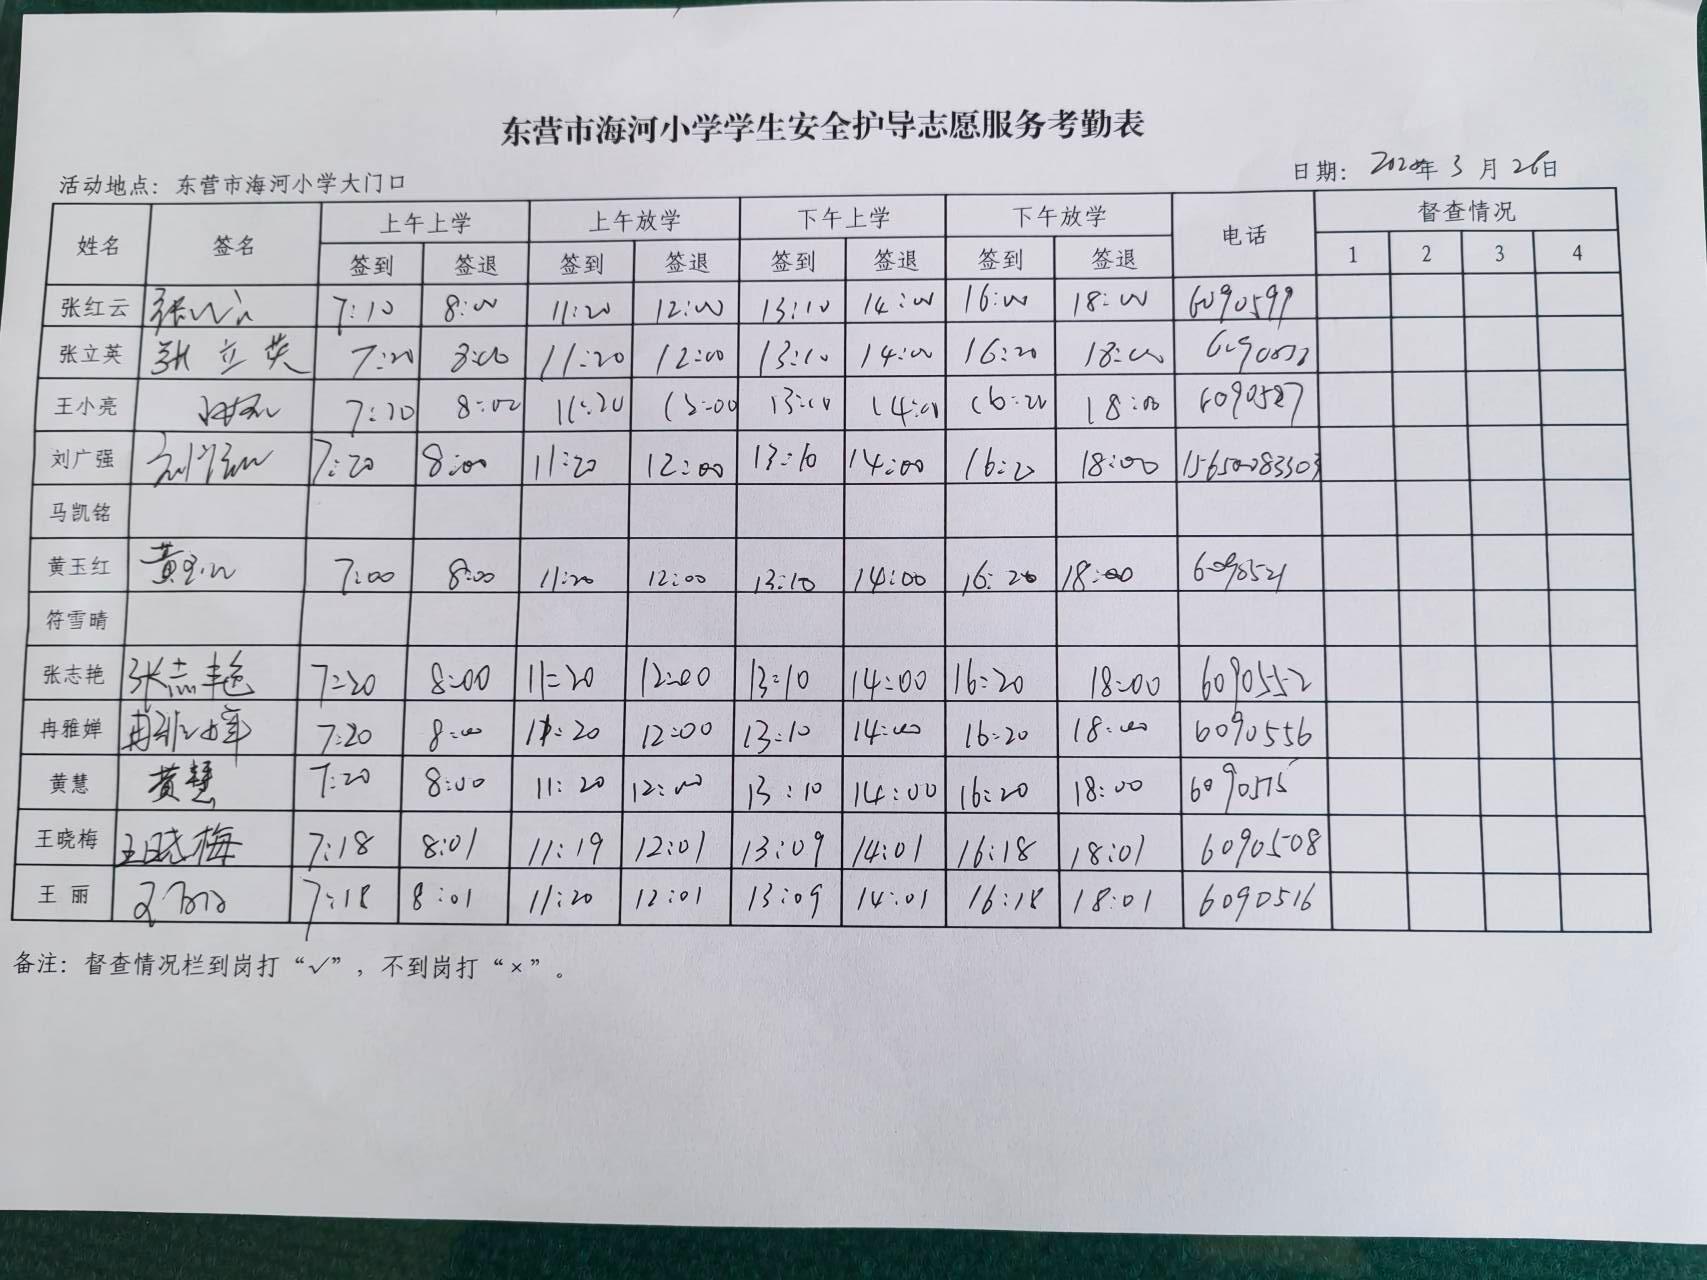 东营市海河小学学生安全护导志愿服务考勤表
活动地点：东营市海河小学大门口 日期： 年 3 月 26日
姓名 签名 上午上学 上午放学 下午上学 下午放学 电话 督查情况
签到 签退 签到 签退 签到 签退 签到 签退 1 2 3 4
张红云 7:10 8:00 11:20 12:00 13:10 14:00 16:00 18:00 6090599
张立英 张立英 7:20 8:00 11:20 12:00 13:10 14:00 16:20 18:00
王小亮 7:20 8:00 11:20 12:00 13:10 14:00 16:20 18:00 6090587
刘广强 刘广强 7:20 8:00 11:20 12:00 13:10 14:00 16:20 18:00 15650083303
马凯铭
黄玉红 黄玉红 7:00 8:00 11:20 12:00 13:10 14:00 16:20 18:00 6090521
符雪晴
张志艳 张志艳 7:20 8:00 11:20 12:00 13:10 14:00 16:20 18:00 6090552
冉雅婵 冉雅婵 7:20 8:00 11:20 12:00 13:10 14:00 16:20 18:00 6090556
黄慧 黄慧 7:20 8:00 11:20 12:00 13:10 14:00 16:20 18:00 6090575
王晓梅 王晓梅 7:18 8:01 11:19 12:01 13:09 14:01 16:18 18:01 6090508
王丽 王丽 7:18 8:01 11:20 12:01 13:09 14:01 16:18 18:01 6090516
备注：督查情况栏到岗打“√”，不到岗打“×”。